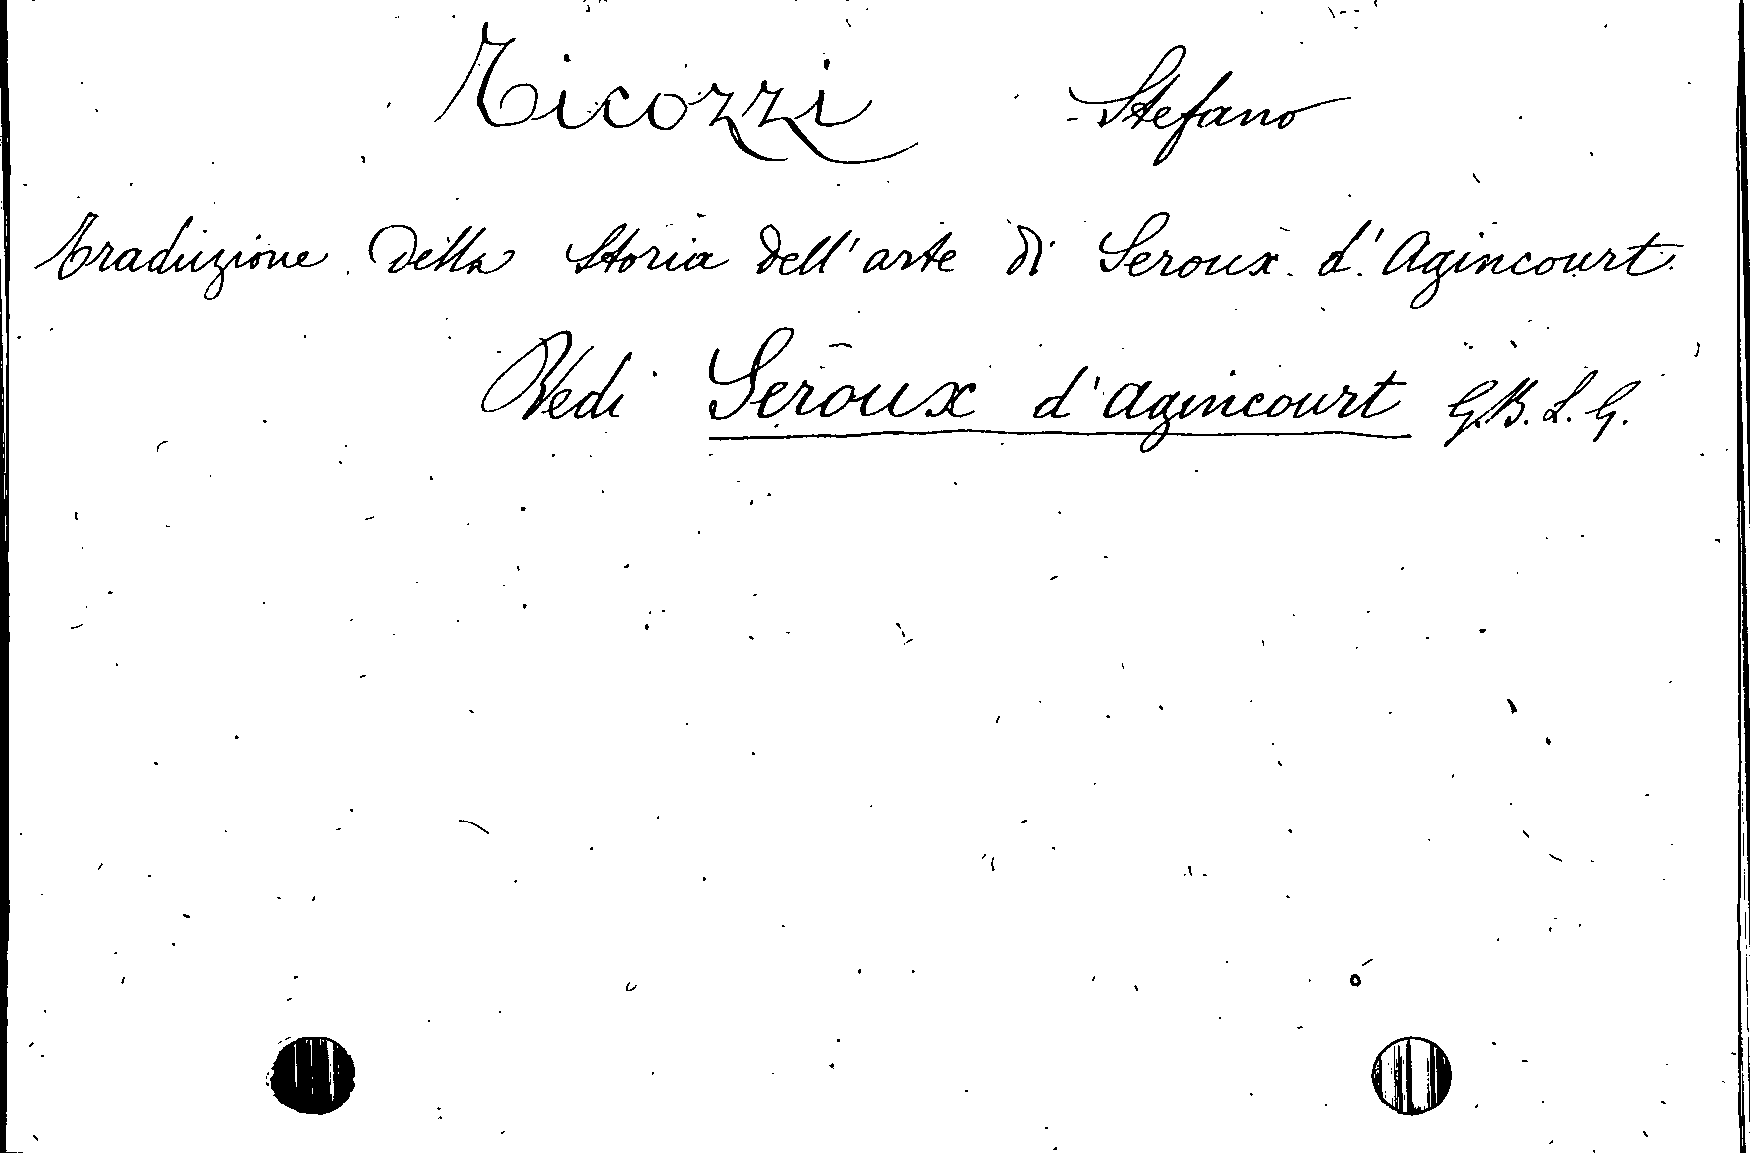 Ticozzi Stefano
traduzione della Storia dell'arte di Seroux d'Agincourt
Vedi Seroux d'Agincourt G.B.L.G.